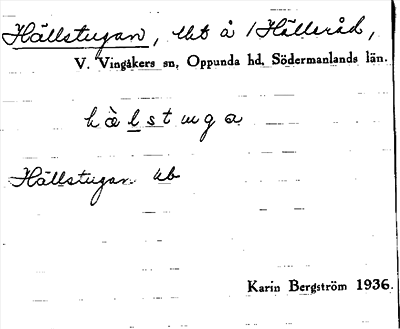 Hällstugan, lht å 1 Hällsråd,
V. Vingåkers sn, Oppunda hd, Södermanlands län.
hälstuga
Hällstugan
Karin Bergström 1936.